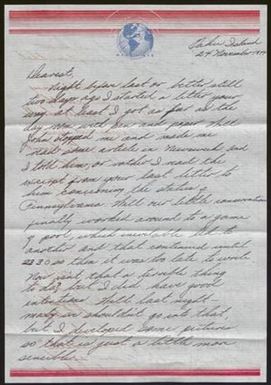 Oahu Island
24 November 1944
Dearest,
Night before last or better still
two days ago I started a letter your
way at least I got as far as the
day now with pen to paper when
John stopped me and made me
read some article in Newsweek and
I told him, or rather I read the
excerpt from your last letter to
him concerning the status of
Pennsylvania. Well our little conversation
finally worked around to a game
of pool, which inevitably led to
another and that continued until
2230 so then it was too late to write.
Now isn't that a terrible thing
to do, but I did have good
intentions. Well last night
may in shouldn't go into that,
but I developed some pictures
so that is just a little more
sensible.